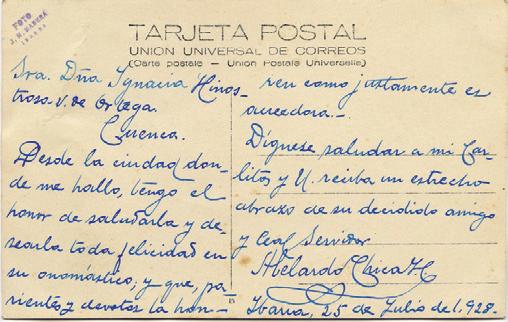 FOTO
J. M. 
IBARRA
TARJETA POSTAL
UNION UNIVERSAL DE CORREOS
(Carte postale – Union Postale Universelle)
Sra. Dña Ignacia Hinos-
trosa V. de Ortega.
Cuenca.
Desde la ciudad don-
de me hallo, tengo el
honor de saludarla y de-
searla toda felicidad en
su onomástico; y que, pa-
rientes y devotos la hon-
ren como justamente es
acreedora.-
Dígnese saludar a mi Car-
litos y U. reciba un estrecho
abrazo de su decidido amigo
y leal servidor
Abelardo Chica
Ibarra, 25 de Julio de 1.928.-